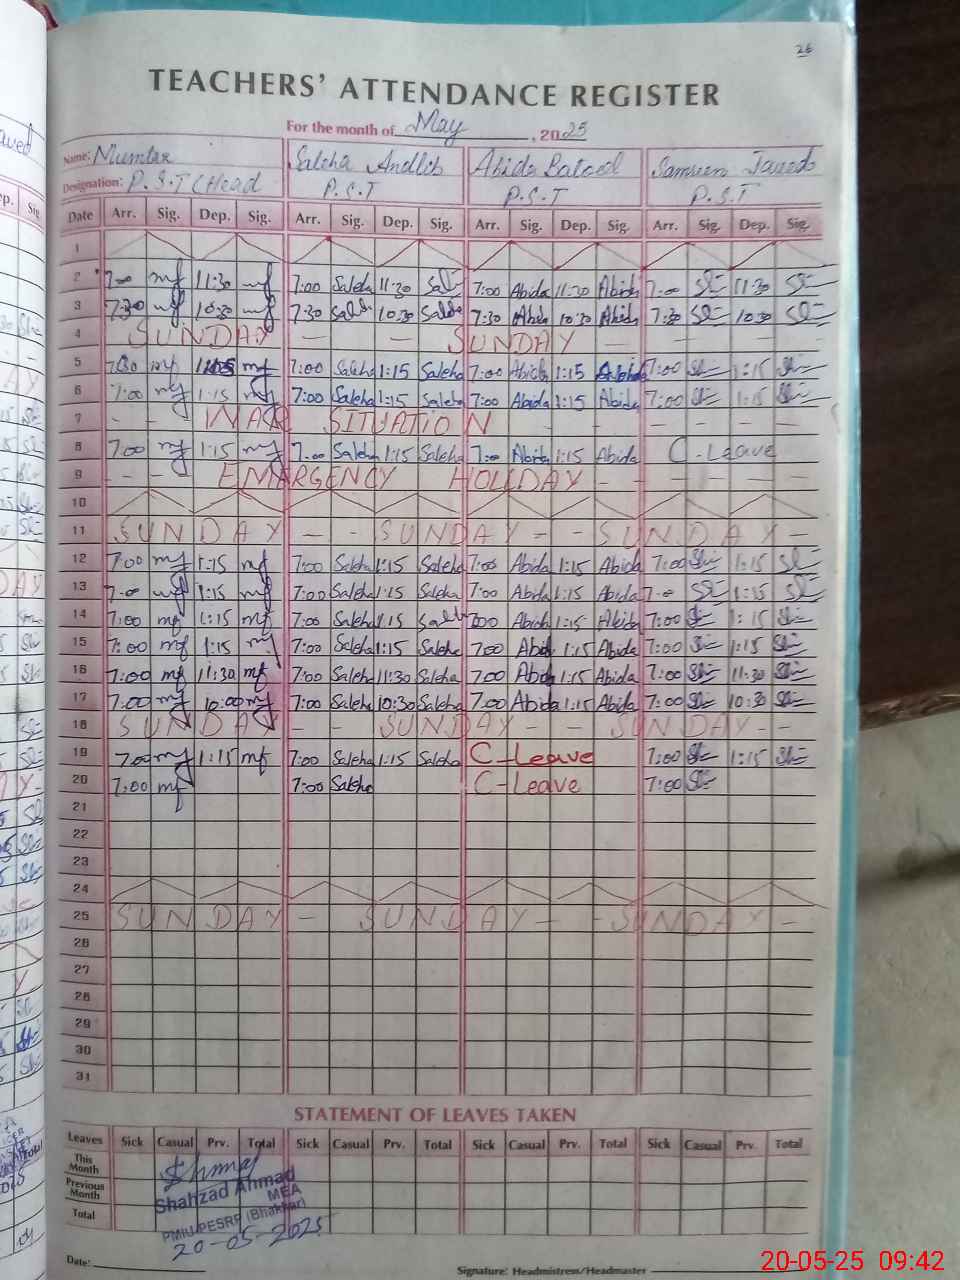 26
TEACHERS' ATTENDANCE REGISTER
For the month of May, 2025
Name: Mumtaz Saleha Andlib Abida Batool Samreen Javed
Designation: P.S.T (Head P.S.T P.S.T P.S.T
Date Arr. Sig. Dep. Sig. Arr. Sig. Dep. Sig. Arr. Sig. Dep. Sig. Arr. Sig. Dep. Sig.
1
2 7:00 mf 11:30 mf 7:00 Saleha 11:30 7:00 Abida 11:30 Abida 7:00 11:30
3 7:30 mf 10:30 mf 7:30 10:30 7:30 Abida 10:30 Abida 7:30 10:30
4 SUNDAY - - SUNDAY - - - -
5 7:00 mf mf 7:00 Saleha 1:15 Saleha 7:00 Abida 1:15 7:00 1:15
6 7:00 mf 1:15 mf 7:00 Saleha 1:15 Saleha 7:00 Abida 1:15 Abida 7:00 1:15
7 - - WAR SITUATION - - - - - -
8 7:00 mf 1:15 mf 7:00 Saleha 1:15 Saleha 7:00 Abida 1:15 Abida C-Leave
9 - - EMERGENCY HOLIDAY - - - - - -
10
11 SUNDAY - - SUNDAY - - SUNDAY -
12 7:00 mf 1:15 mf 7:00 Saleha 1:15 Saleha 7:00 Abida 1:15 Abida 7:00 1:15
13 7:00 mf 1:15 mf 7:00 Saleha 1:15 Saleha 7:00 Abida 1:15 Abida 7:00 1:15
14 7:00 mf 1:15 mf 7:00 Saleha 1:15 7:00 Abida 1:15 Abida 7:00 1:15
15 7:00 mf 1:15 mf 7:00 Saleha 1:15 Saleha 7:00 Abida 1:15 Abida 7:00 1:15
16 7:00 mf 11:30 mf 7:00 Saleha 11:30 Saleha 7:00 Abida 1:15 Abida 7:00 11:30
17 7:00 mf 10:00 mf 7:00 Saleha 10:30 Saleha 7:00 Abida 1:15 Abida 7:00 10:30
18 SUNDAY - - SUNDAY - - SUNDAY - -
19 7:00 mf 1:15 mf 7:00 Saleha 1:15 Saleha C-Leave 7:00 1:15
20 7:00 mf 7:00 Saleha C-Leave 7:00
21
22
23
24
25 SUNDAY - SUNDAY - - SUNDAY -
26
27
28
29
30
31
STATEMENT OF LEAVES TAKEN
Leaves Sick Casual Prv. Total Sick Casual Prv. Total Sick Casual Prv. Total Sick Casual Prv. Total
This Month
Previous Month
Total
Shahzad Ahmad
MEA
PMIU PESRP (Bhakkar)
20-05-2025
Date:
Signature: Headmistress/Headmaster
20-05-25 09:42